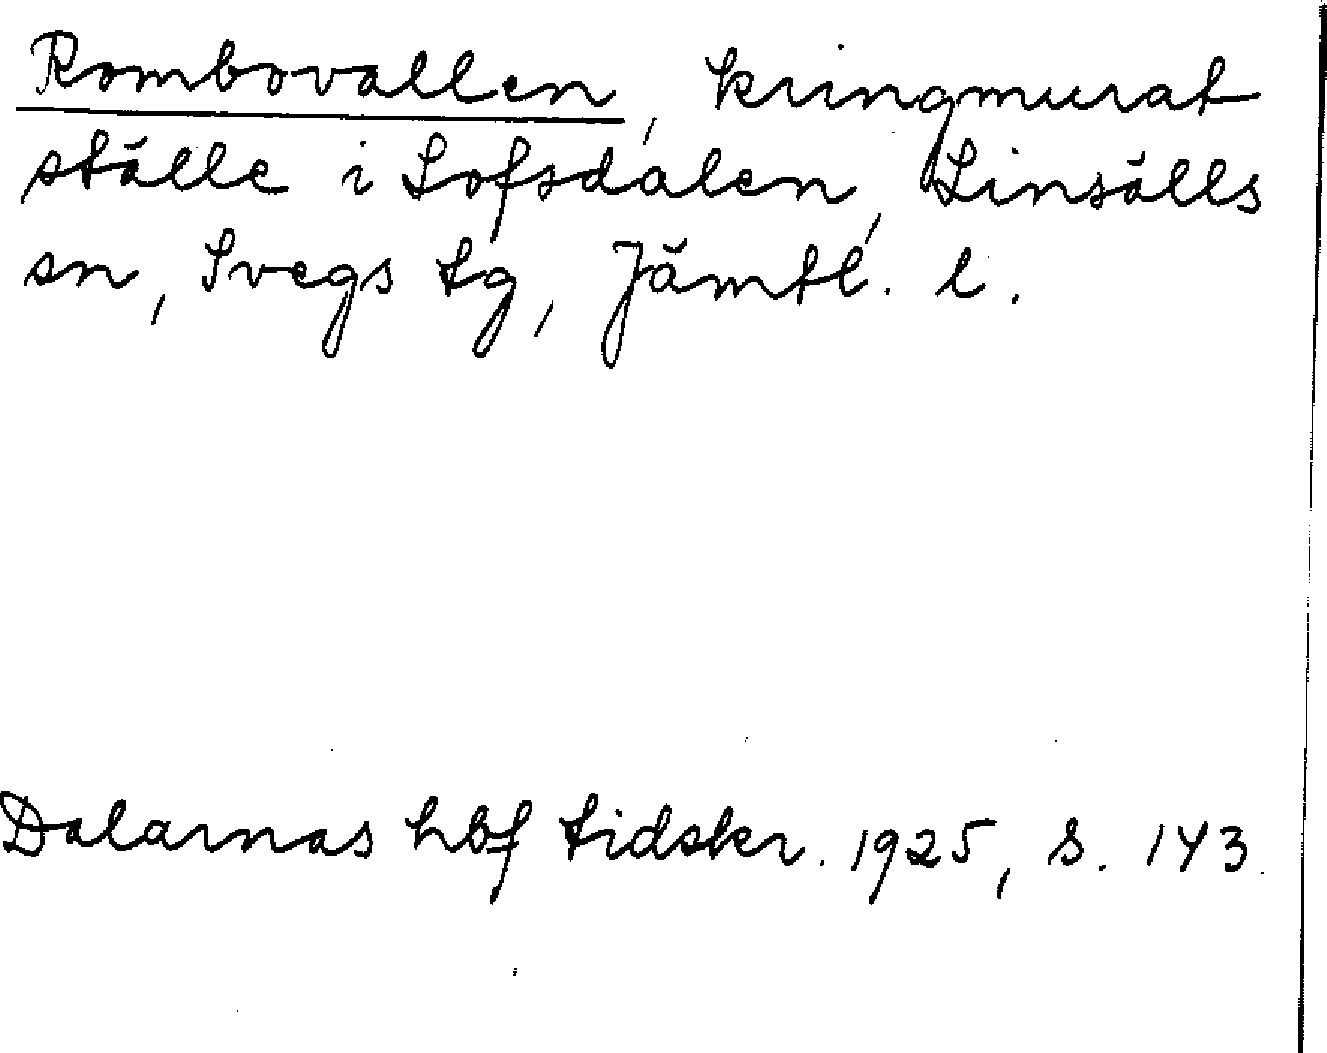 Rombovallen, kringmurat
ställe i Lofsdalen, Linsälls
sn, Svegs tg, Jämtl. l.
Dalarnas hbf tidskr. 1925, s. 143.